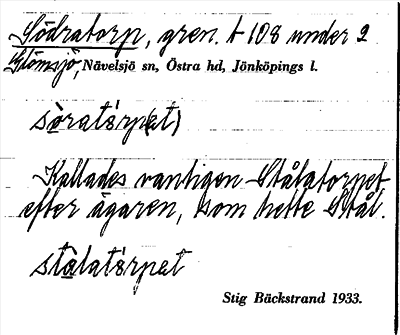 Södratorp, gren. t 108 under 2
Glömsjö, Nävelsjö sn, Östra hd, Jönköpings l.
sòratór̀p(et)
Kallades vanligen Stålatorpet
efter ägaren, som hette Stål.
stòlatór̀pet
Stig Bäckstrand 1933.